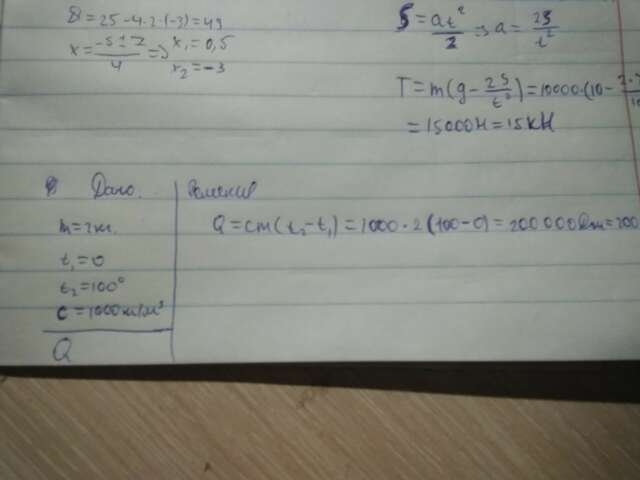 D = 25 - 4·2·(-3) = 49
x = (-5 ± 7)/4 => x₁ = 0,5
x₂ = -3
S = at²/2 => a = 2S/t²
T = m(g - 2S/t²) = 10000·(10 -
= 15000Н = 15кН
Дано.
m = 2кг.
t₁ = 0
t₂ = 100°
c = 1000кг/м³
Q
Решение
Q = cm(t₂ - t₁) = 1000·2(100 - 0) = 200000Дж = 200